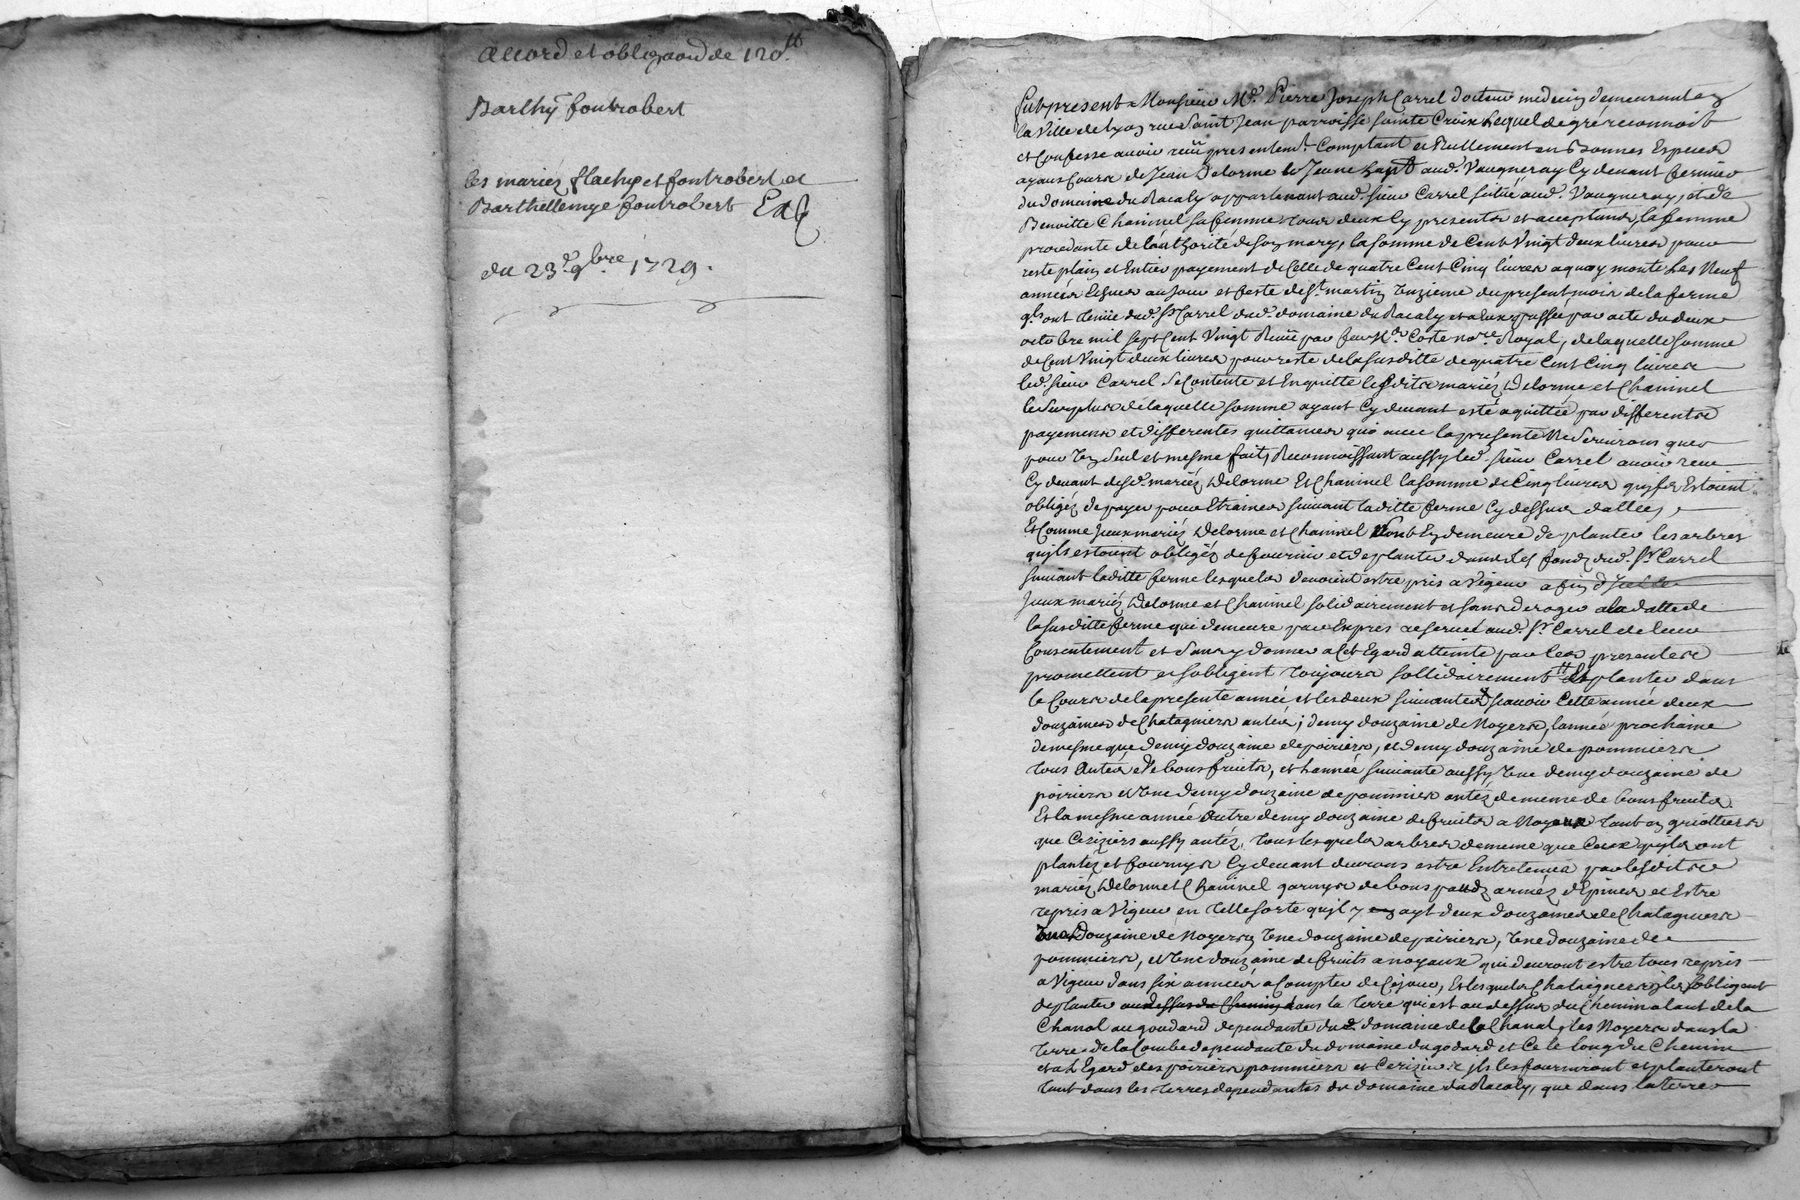 accord et obligaõn de 120 tt
Barthy foutrobert
les mariéz flachy et foutrobert et
Barthellemye foutrobert
du 23.e 9bre 1729.
Fut present Monsieur Me. Pierre Joseph Carrel docteur medecin demeurant en
la Ville de Lyon rue Saint Jean parroisse sainte Croix Lequel de gré reconnoit
et Confesse avoir receu presentemt. Comptant et Reellement en Bonnes Especes
ayans Cours de Jean Delorme le Jeune habt. aud. Vaugneray Cy devant fermier
du domaine du Racaly appartenant aud. sieur Carrel scitué aud. Vaugneray, et de
Benoitte Chaninel sa femme tous deux Cy presents et acceptans, la femme
procedante de l'authorité de son mary, la somme de Cent Vingt deux livres pour
reste plain et Entier payement de Celle de quatre Cent Cinq livres a quoy monte Les Neuf
années Echues au jour et feste de St. martin Unzieme du present mois de la ferme
qls. ont tenüe dud. Sr. Carrel dud. domaine du Racaly et a eux passée par acte du deux
octobre mil sept Cent Vingt Receu par feu Coste nore. Royal, de laquelle somme
de Cent Vingt deux livres pour reste de la susditte de quatre Cent Cinq livres
led. sieur Carrel se Contente et En quitte lesdits mariéz Delorme et Chaninel
le Surplus de laquelle somme ayant Cy devant esté aquittée par differents
payemens et differentes quittances qui avec la presente Ne Serviront que
pour Un Seul et mesme fait, Reconnoissant aussy led. sieur Carrel avoir receu
Cy devant desd. mariéz Delorme Et Chaninel la somme de Cinq livres quils Estoient
obligéz de payer pour Etraines suivant laditte ferme Cy dessus dattée,
Et Comme Jceux mariéz Delorme et Chaninel sont En demeure de planter les arbres
quils estoient obligéz de fournir et de planter dans Les fonds dud. Sr. Carrel
suivant laditte ferme lesquels devoient estre pris a Vigeur a fin d'Jcelle
Jceux mariéz Delorme et Chaninel solidairement et sans deroger a la datte de
la susditte ferme qui demeure par Exprés reservée aud. Sr. Carrel de leur
Consentement et Sans y donner a Cet Egard atteinte par les presentes
promettent et s'obligent toujours sollidairement de planter dans
le Cours de la presente année et les deux suivantes scavoir Cette année deux
douzaines de Chatagniers antés; demy douzaine de Noyers, l'année prochaine
de mesme que demy douzaine de poiriers, et demy douzaine de pommiers
tous Antés de bons fruits, et l'année suivante aussy Une demy douzaine de
poiriers et Une demy douzaine de pommiers antéz de meme de bons fruits
Et la mesme année Autre demy douzaine de fruits a Noyaux tant en griottiers
que Ceriziers aussy antéz, tous lesquels arbres de meme que Ceux quils ont
plantez et fournys Cy devant devront estre Entretenus par lesdits
mariéz Delorme et Chaninel garnys de bons paux arméz d'Epines et Estre
repris a Vigeur en telle sorte quil y ayt deux douzaines de Chatagniers
Une Douzaine de Noyers, Une douzaine de poiriers, Une douzaine de
pommiers, et Une douzaine de fruits a noyaux qui devront estre tous repris
a Vigeur dans six années a Compter de Ce jour, Et lesquels Chataigniers ils s'obligent
de planter dans la Terre qui est au dessus du Chemin alant de la
Chanal au goudard dependante dud. domaine de la Chanal, les Noyers dans la
Terre de la Combe dependante du domaine du godard et Ce le long du Chemin
et a L'Egard des poiriers pommiers et Ceriziers, ils les fourniront et planteront
tant dans les Terres dependantes du domaine du Racaly, que dans la terre